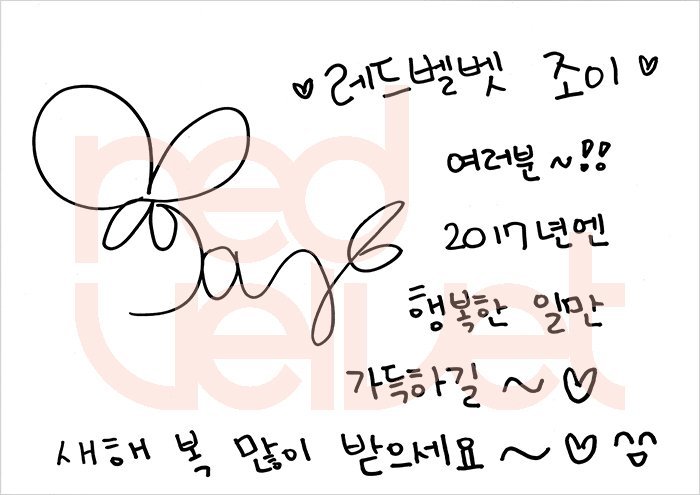 ♡ 레드벨벳 조이 ♡
여러분~!!
2017년엔
행복한 일만
가득하길~♡
새해 복 많이 받으세요~♡^^
red
velvet